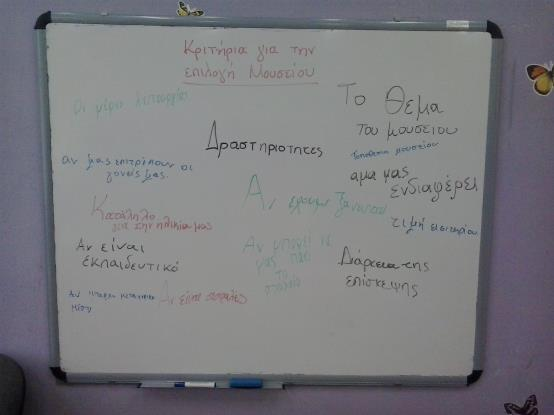 Κριτήρια για την
επιλογή Μουσείου
Οι μέρες λειτουργίας
Δραστηριοτητες
αν μας επιτρέπουν οι
γονείς μας.
Κατάλληλο
για την ηλικία μας
Αν είναι
εκπαιδευτικό
Αν υπάρχει μεταφορικο
μέσο
Αν είναι ασφαλές
Αν έχουμε ξαναπαει
Αν μπορεί να
μας πάει
το
σχολείο
Το Θέμα
του μουσειου
Τοποθεσια μουσείου
αμα μας
ενδιαφέρει
τιμή εισιτηρίου
Διάρκεια της
επίσκεψης